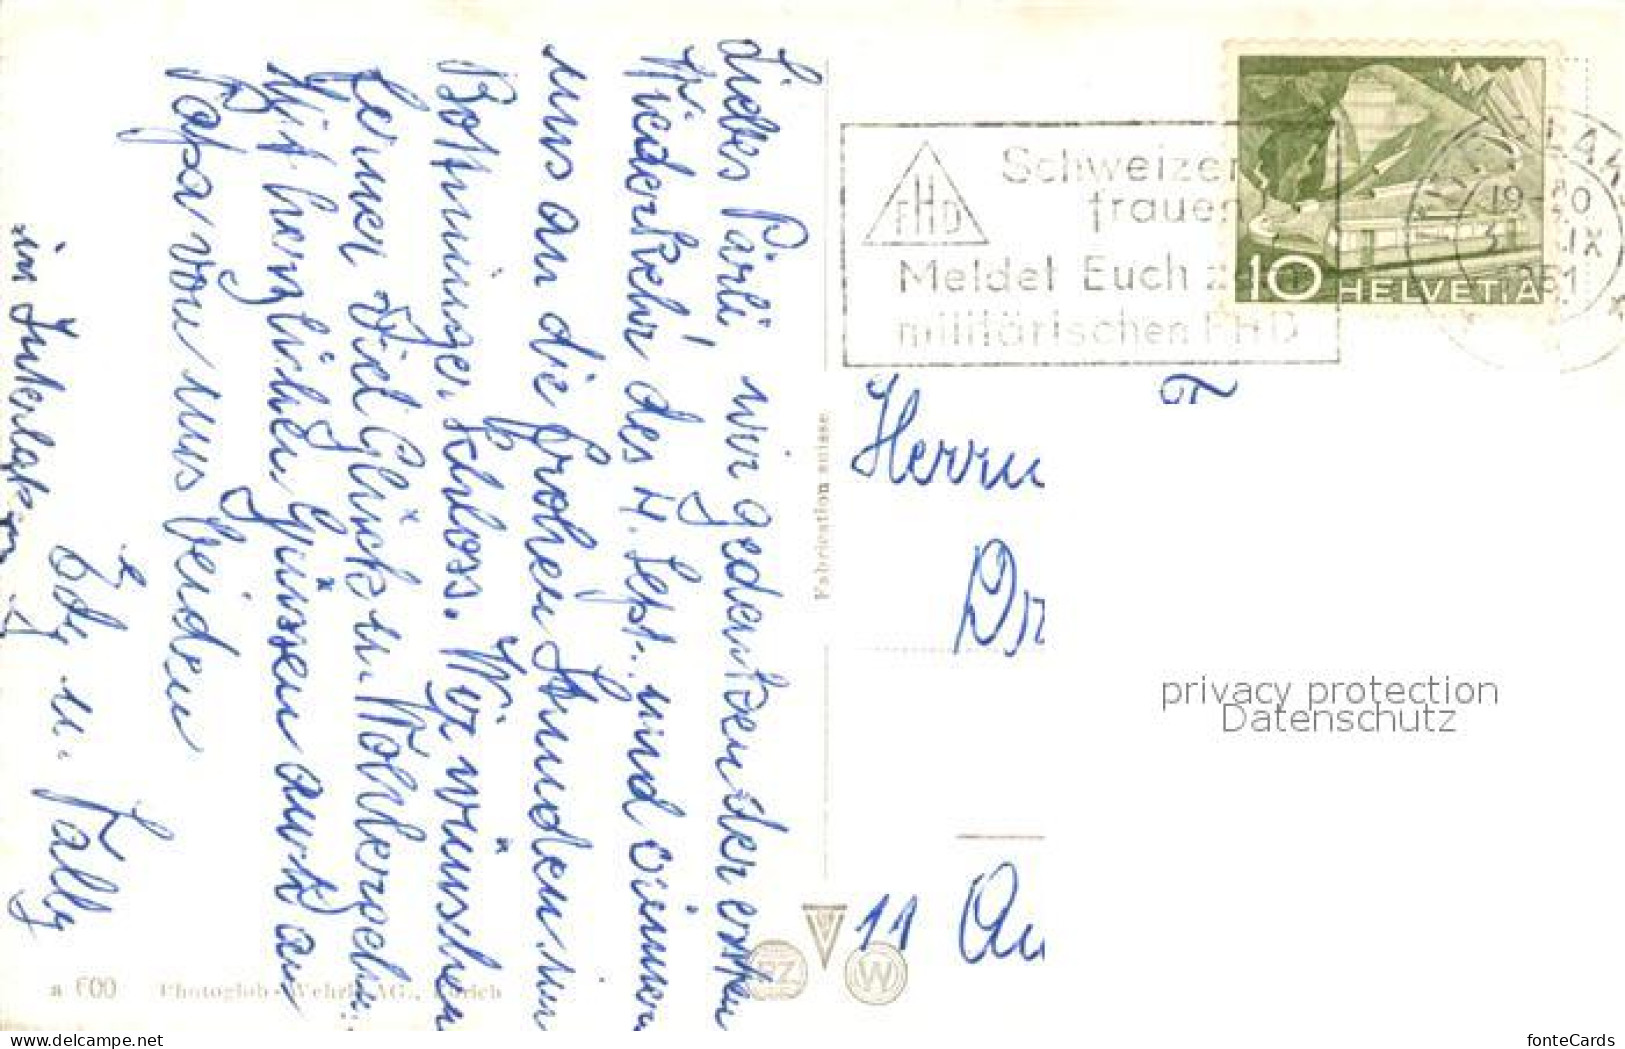 Liebes Pärli, wir gedenken der ersten
Wiederkehr des 4. Sept. und erinnern
uns an die frohen Stunden im
Bottminger Schloss. Wir wünschen
ferner viel Glück u. Wohlergehen.
Mit herzlichen Grüssen auch an
Papa von uns beiden
Edy u. Fally
in Interlaken
Fabrication suisse
a 600 Photoglob-Wehrli AG., Zürich
PZ
W
FHD
Schweizer
frauen
Meldet Euch z
militärischen FHD
10 HELVETIA
19-20
IX
1951
Herrn
Dr
11 Au
privacy protection
Datenschutz
www.delcampe.net
fonteCards